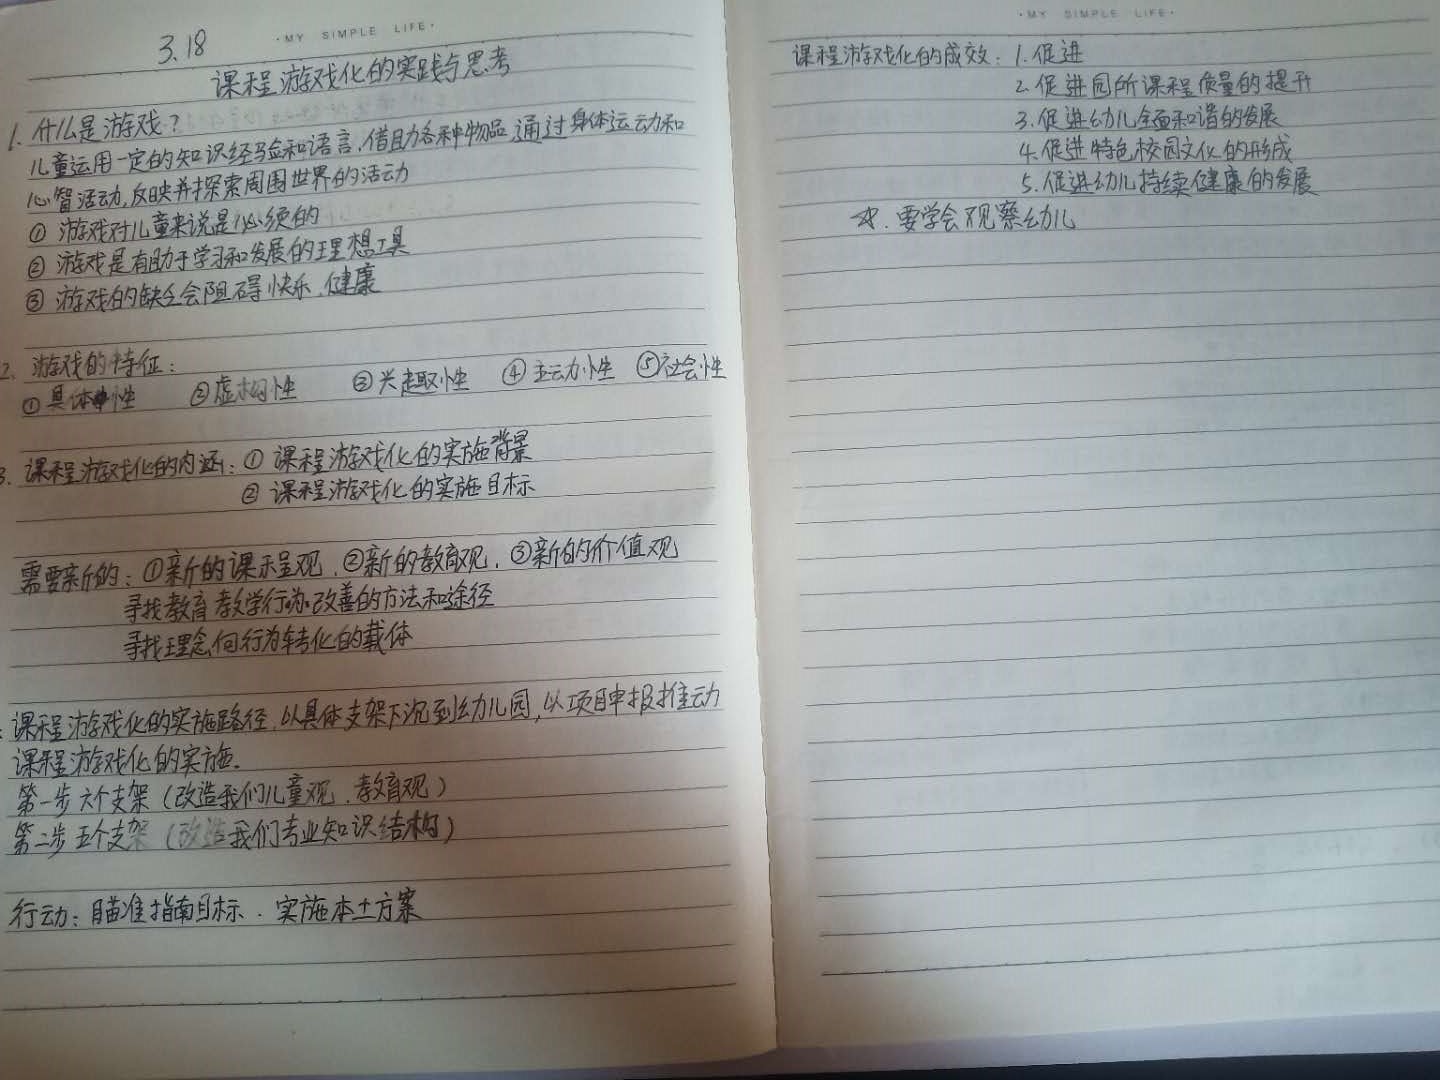 ·MY SIMPLE LIFE·
3.18
课程游戏化的实践与思考
1. 什么是游戏?
儿童运用一定的知识经验和语言,借助各种物品,通过身体运动和
心智活动,反映并探索周围世界的活动
① 游戏对儿童来说是必须的
② 游戏是有助于学习和发展的理想工具
③ 游戏的缺乏会阻碍快乐、健康
2. 游戏的特征:
①具体性 ②虚构性 ③兴趣性 ④主动性 ⑤社会性
3. 课程游戏化的内涵:① 课程游戏化的实施背景
② 课程游戏化的实施目标
需要新的:①新的课程观、②新的教育观、③新的价值观
寻找教育教学行为改善的方法和途径
寻找理念向行为转化的载体
课程游戏化的实施路径,以具体支架下沉到幼儿园,以项目申报推动
课程游戏化的实施.
第一步六个支架(改造我们儿童观、教育观)
第二步五个支架(改造我们专业知识结构)
行动:瞄准指南目标、实施本土方案
·MY SIMPLE LIFE·
课程游戏化的成效:1.促进
2.促进园所课程质量的提升
3.促进幼儿全面和谐的发展
4.促进特色校园文化的形成
5.促进幼儿持续健康的发展
☆.要学会观察幼儿